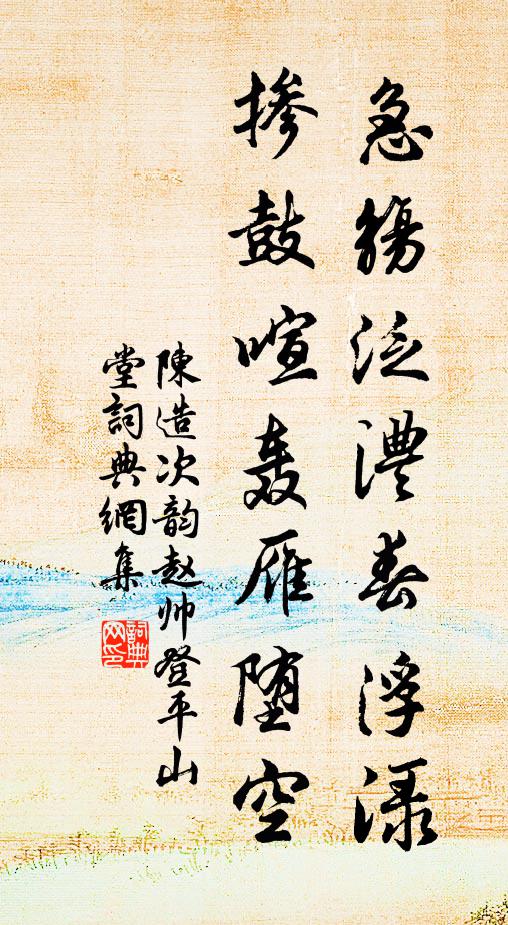 急觞泛澧春浮渌
掺鼓喧轰雁堕空
陳造次韵赵帅登平山
堂詞典網集
詞典
网印